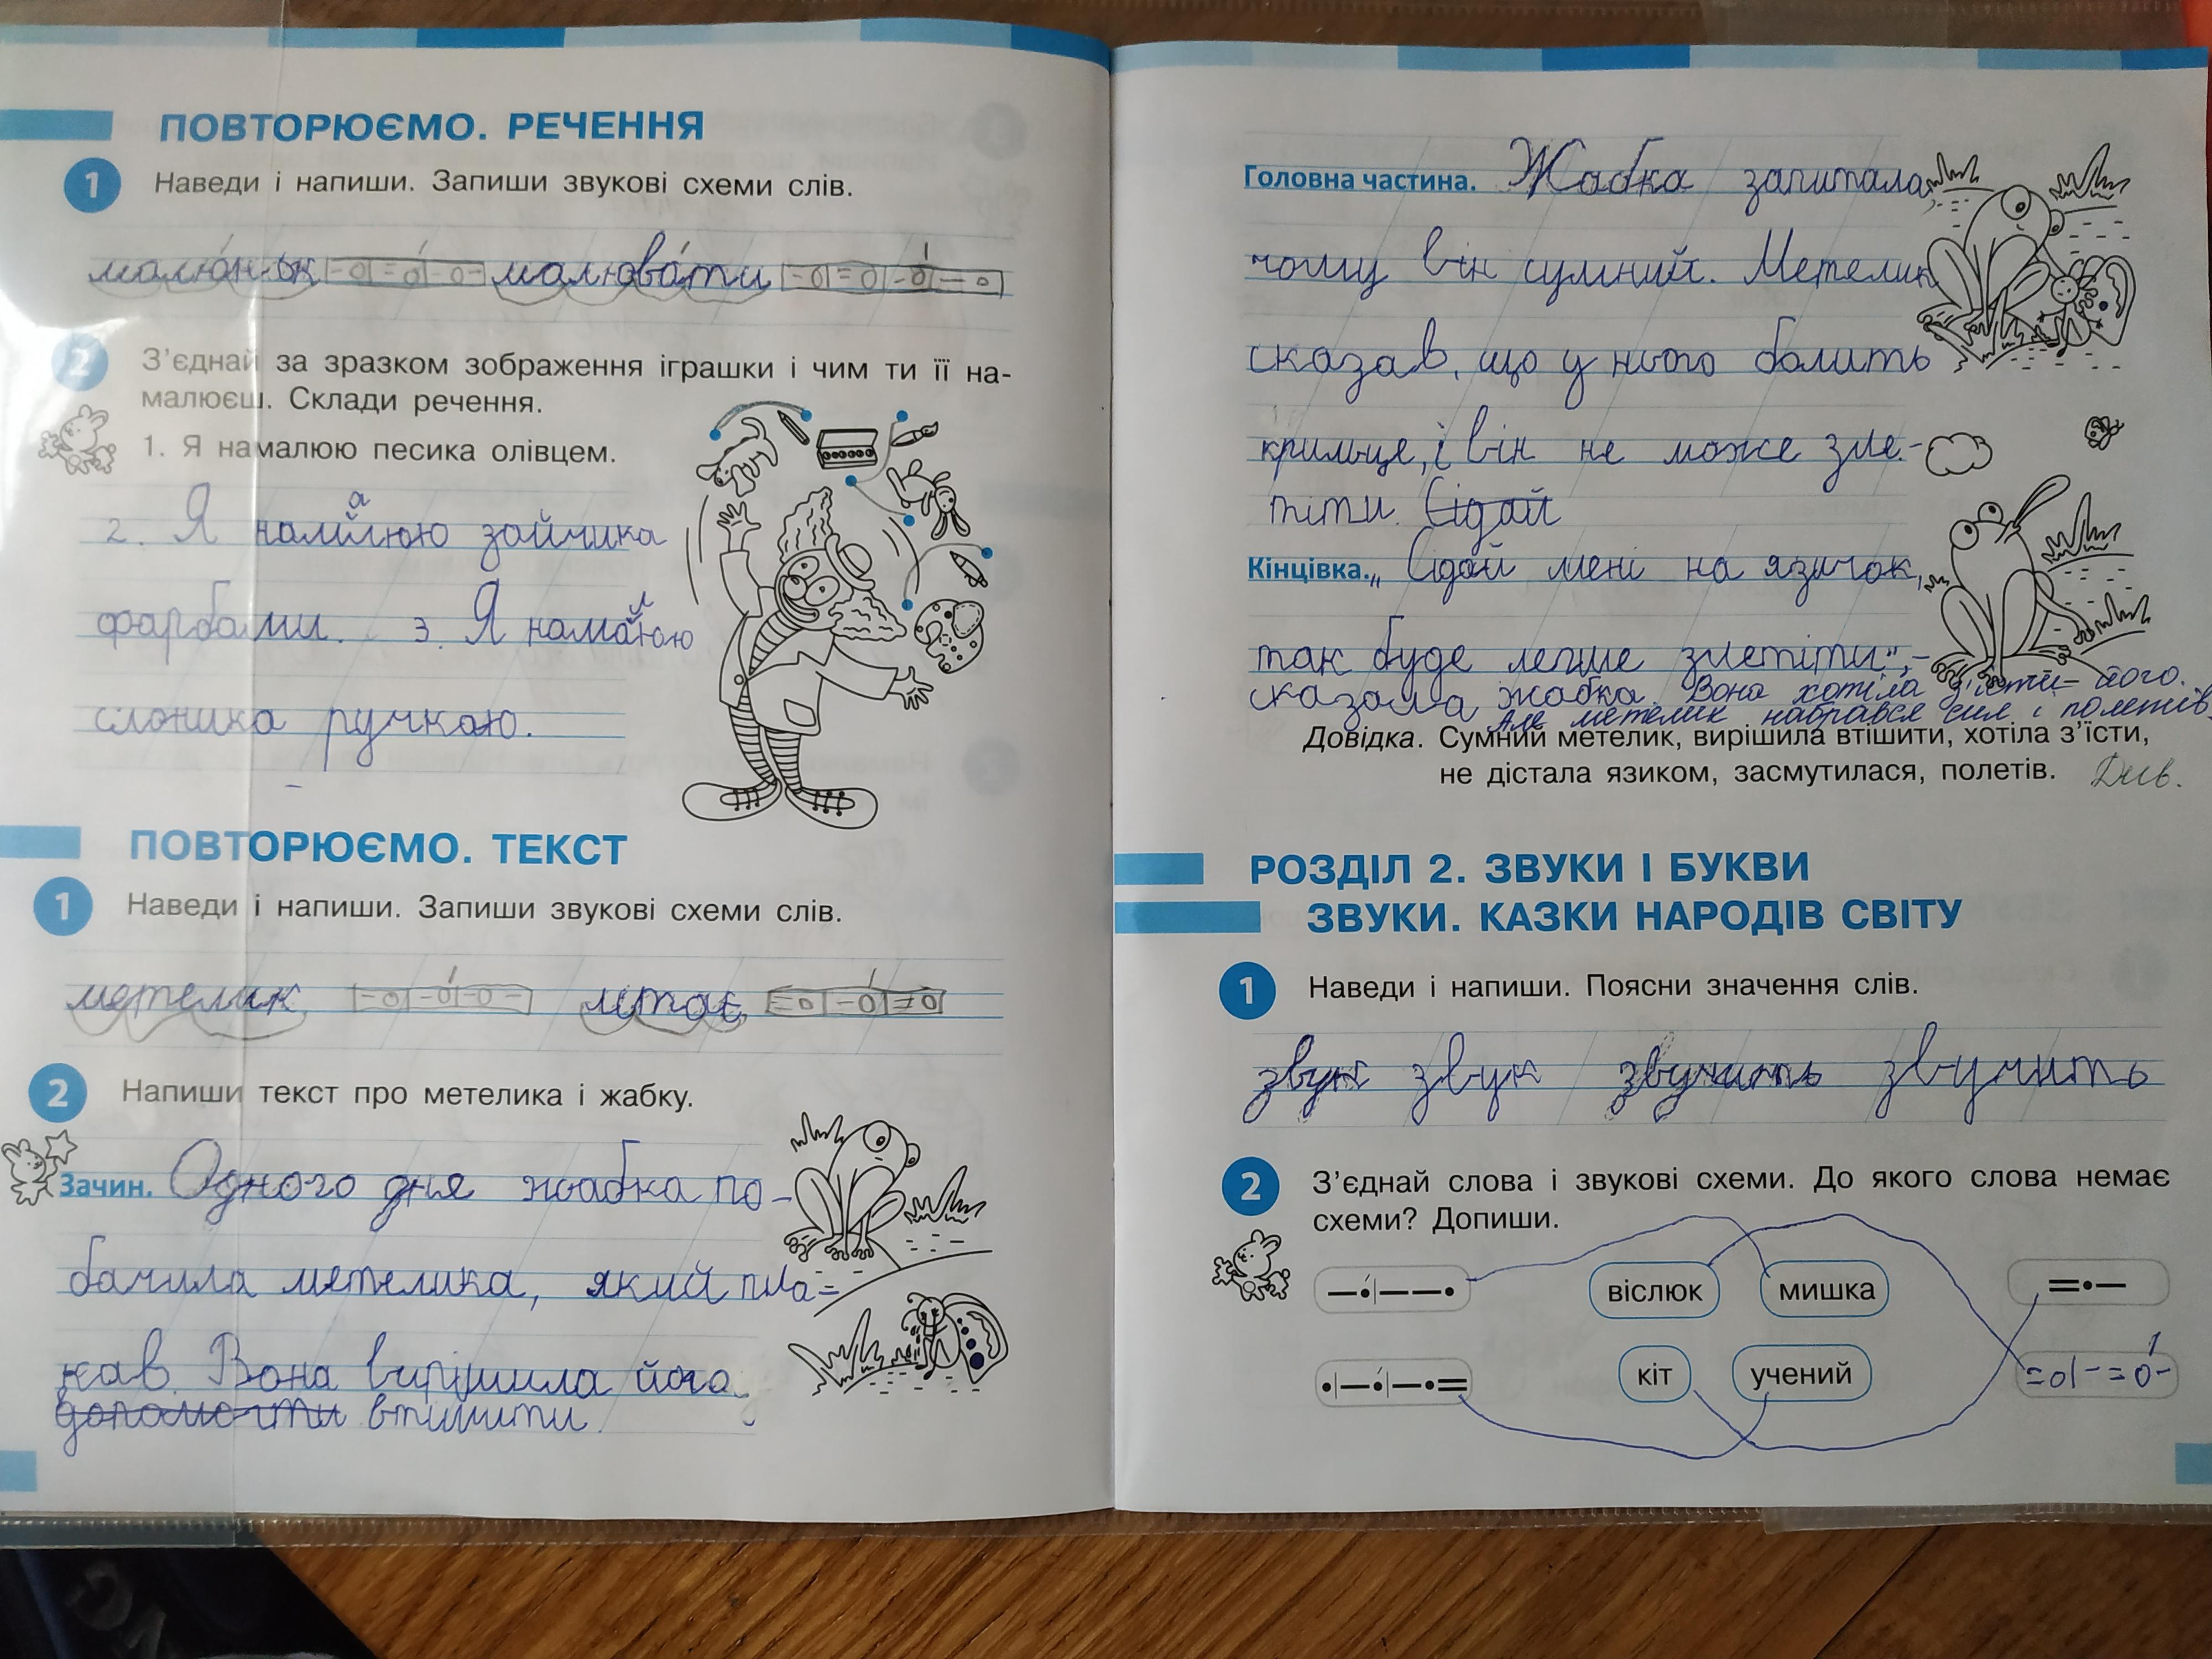 ПОВТОРЮЄМО. РЕЧЕННЯ
1 Наведи і напиши. Запиши звукові схеми слів.
малюнок малювати
2 З'єднай за зразком зображення іграшки і чим ти її на-
малюєш. Склади речення.
1. Я намалюю песика олівцем.
2. Я намалюю зайчика
фарбами. 3. Я намалюю
слоника ручкою.
ПОВТОРЮЄМО. ТЕКСТ
1 Наведи і напиши. Запиши звукові схеми слів.
метелик літає
2 Напиши текст про метелика і жабку.
Зачин. Одного дня жабка по-
бачила метелика, який пла=
кав. Вона вирішила його
допомогти втішити.
Головна частина. Жабка запитала,
чому він сумний. Метелик
сказав, що у нього болить
крильце, і він не може зле-
тіти. Сідай
Кінцівка. „Сідай мені на язичок,
так буде легше злетіти",-
сказала жабка. Вона хотіла з'їсти його.
Але метелик набрався сил і полетів.
Довідка. Сумний метелик, вирішила втішити, хотіла з'їсти,
не дістала язиком, засмутилася, полетів. Див.
РОЗДІЛ 2. ЗВУКИ І БУКВИ
ЗВУКИ. КАЗКИ НАРОДІВ СВІТУ
1 Наведи і напиши. Поясни значення слів.
звук звук звучить звучить
2 З'єднай слова і звукові схеми. До якого слова немає
схеми? Допиши.
віслюк мишка
кіт учений